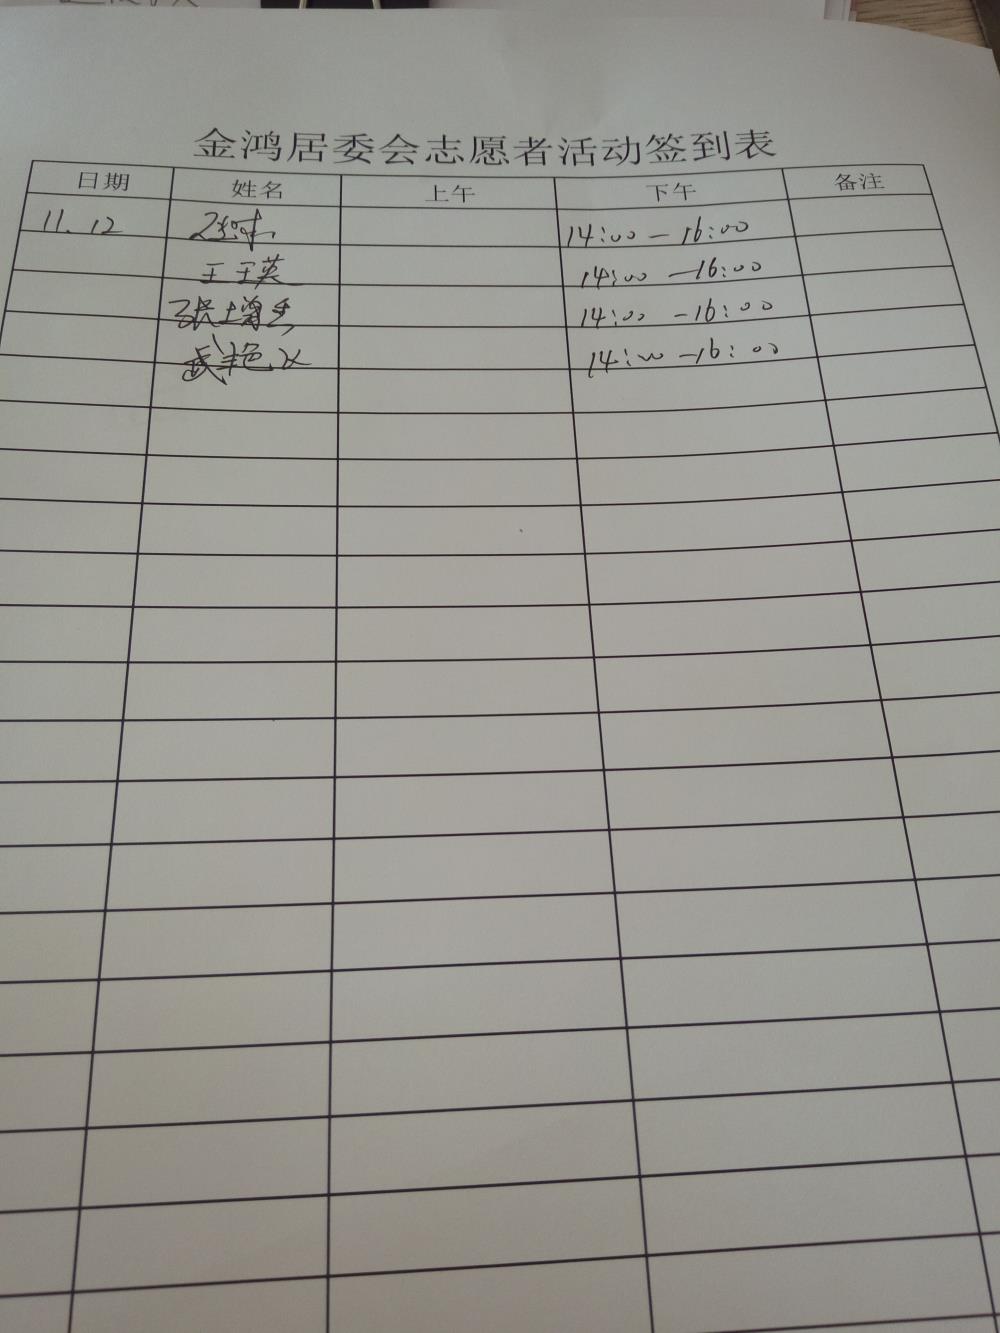 金鸿居委会志愿者活动签到表
日期 姓名 上午 下午 备注
11.12 14:00-16:00
王玉英 14:00-16:00
张增 14:00-16:00
艳 14:00-16:00